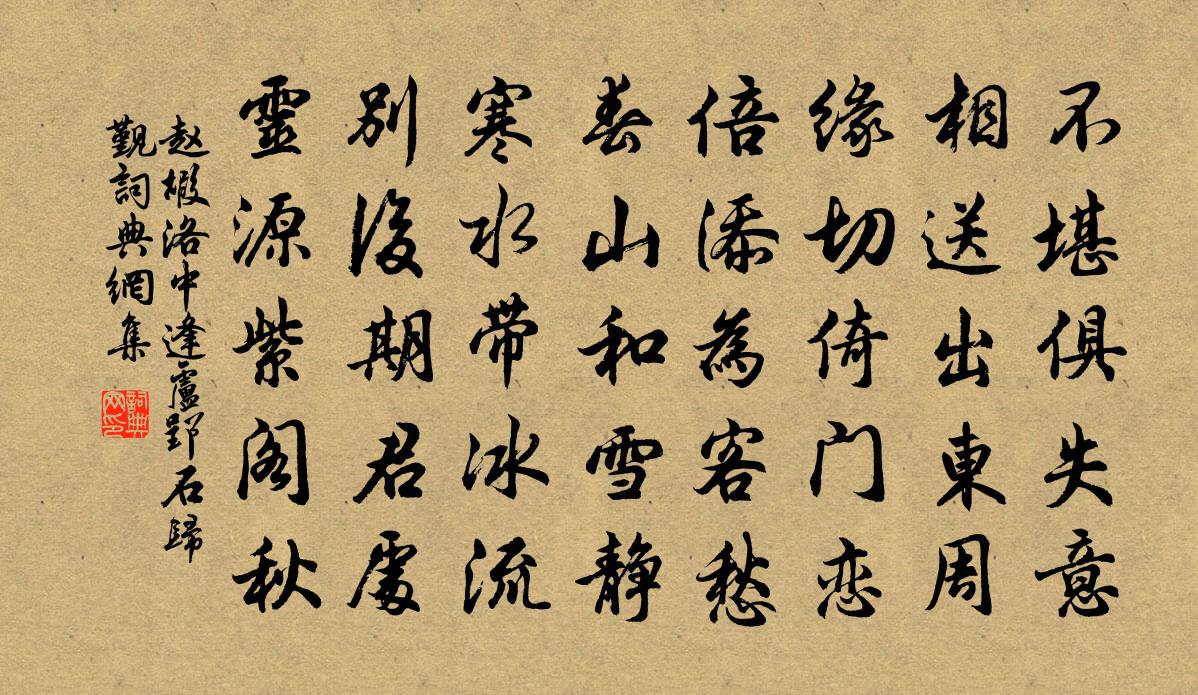 不堪俱失意
相送出東周
缘切倚门恋
倍添為客愁
春山和雪静
寒水带冰流
別後期君處
靈源紫阁秋
赵嘏洛中逢盧郢石歸
觐詞典網集
詞典网印